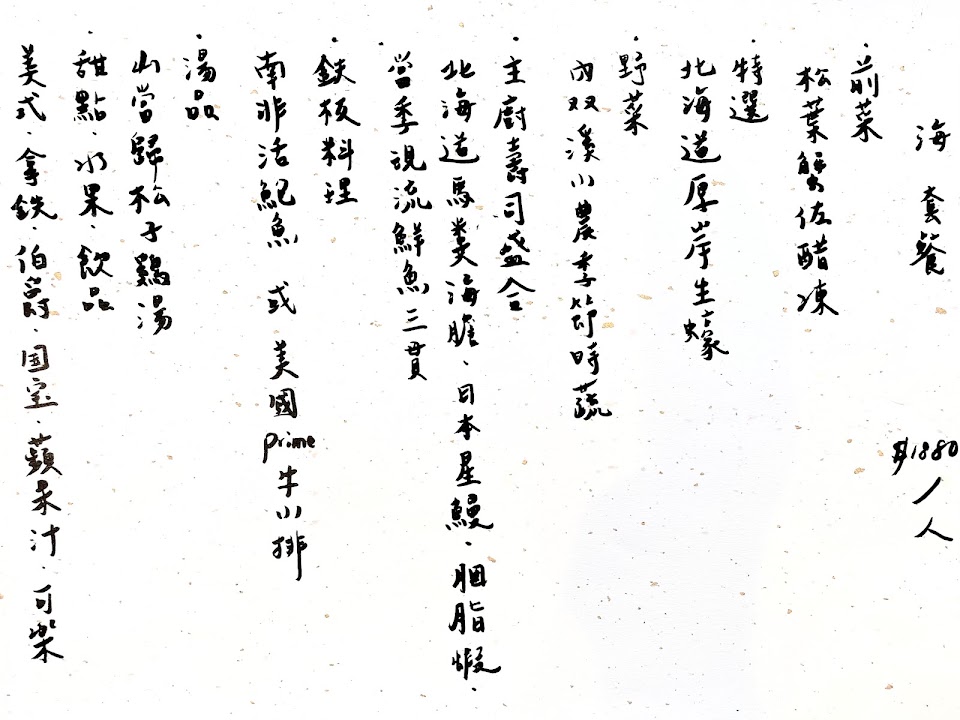 海 套餐 $1880/人
・前菜
松葉蟹佐醋凍
・特選
北海道厚岸生蠔
・野菜
內双溪小農季節時蔬
・主廚壽司盛合
北海道馬糞海膽、日本星鰻、胭脂蝦、
當季現流鮮魚三貫
・鉄板料理
南非活鮑魚 或 美國prime牛小排
・湯品
山當歸松子鷄湯
・甜點、水果、飲品
美式、拿鉄、伯爵、国宝、蘋果汁、可楽